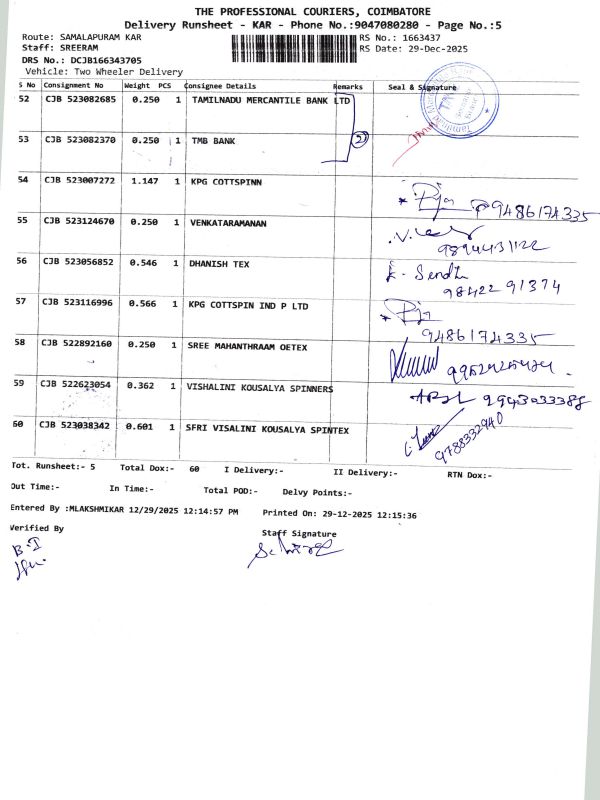 THE PROFESSIONAL COURIERS, COIMBATORE
Delivery Runsheet - KAR - Phone No.:9047080280 - Page No.:5
Route: SAMALAPURAM KAR RS No.: 1663437
Staff: SREERAM RS Date: 29-Dec-2025
DRS No.: DCJB166343705
Vehicle: Two Wheeler Delivery
S No Consignment No Weight PCS Consignee Details Remarks Seal & Signature
52 CJB 523082685 0.250 1 TAMILNADU MERCANTILE BANK LTD
53 CJB 523082370 0.250 1 TMB BANK 2
54 CJB 523007272 1.147 1 KPG COTTSPINN
9486174335
55 CJB 523124670 0.250 1 VENKATARAMANAN
9894431122
56 CJB 523056852 0.546 1 DHANISH TEX
98422 91374
57 CJB 523116996 0.566 1 KPG COTTSPIN IND P LTD
9486174335
58 CJB 522892160 0.250 1 SREE MAHANTHRAAM OETEX
59 CJB 522623054 0.362 1 VISHALINI KOUSALYA SPINNERS
60 CJB 523038342 0.601 1 SFRI VISALINI KOUSALYA SPINTEX
9788332940
Tot. Runsheet:- 5 Total Dox:- 60 I Delivery:- II Delivery:- RTN Dox:-
Out Time:- In Time:- Total POD:- Delvy Points:-
Entered By :MLAKSHMIKAR 12/29/2025 12:14:57 PM Printed On: 29-12-2025 12:15:36
Verified By Staff Signature